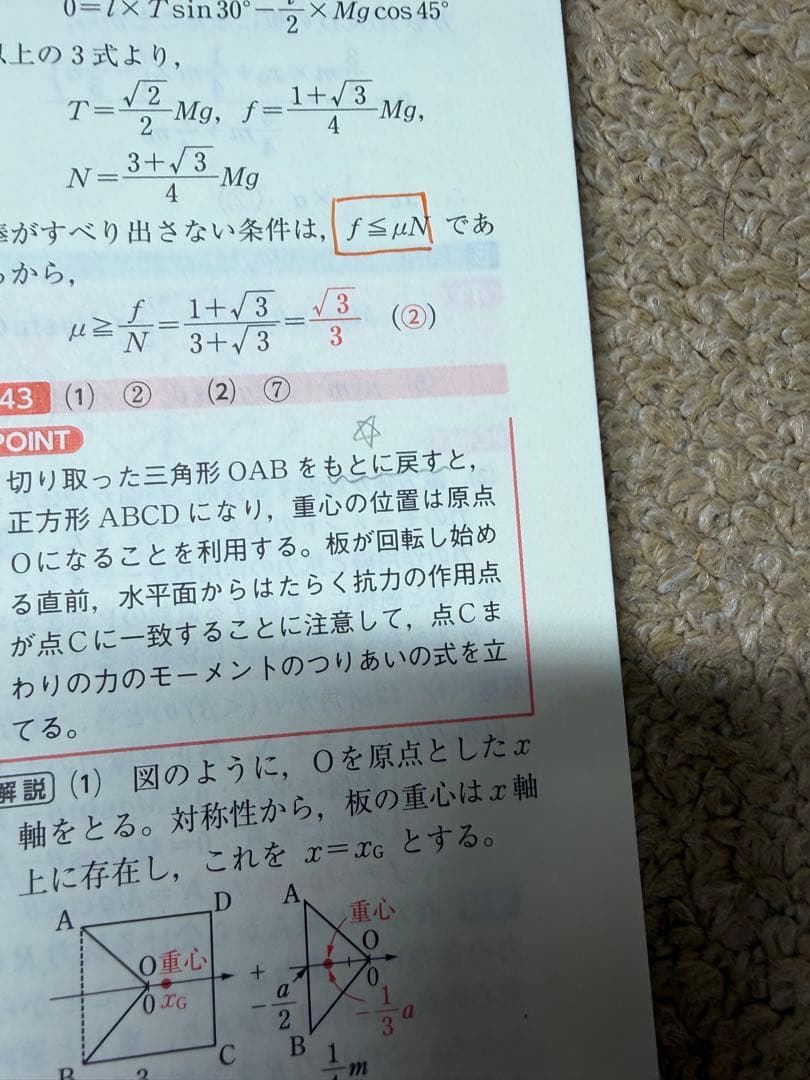 0=l×T sin30°−l/2×Mg cos45°
以上の3式より,
T=√2/2 Mg, f=1+√3/4 Mg,
N=3+√3/4 Mg
がすべり出さない条件は, f≦μN であ
るから,
μ≧f/N=1+√3/3+√3=√3/3 (②)
43 (1) ② (2) ⑦
POINT
切り取った三角形OABをもとに戻すと,
正方形ABCDになり, 重心の位置は原点
Oになることを利用する。板が回転し始め
る直前, 水平面からはたらく抗力の作用点
が点Cに一致することに注意して, 点Cま
わりの力のモーメントのつりあいの式を立
てる。
解説 (1) 図のように, Oを原点としたx
軸をとる。対称性から, 板の重心はx軸
上に存在し, これを x=xG とする。
A D A 重心
O 重心 + O
0 xG −a/2 0
−1/3 a
B C B
3 1/4 m